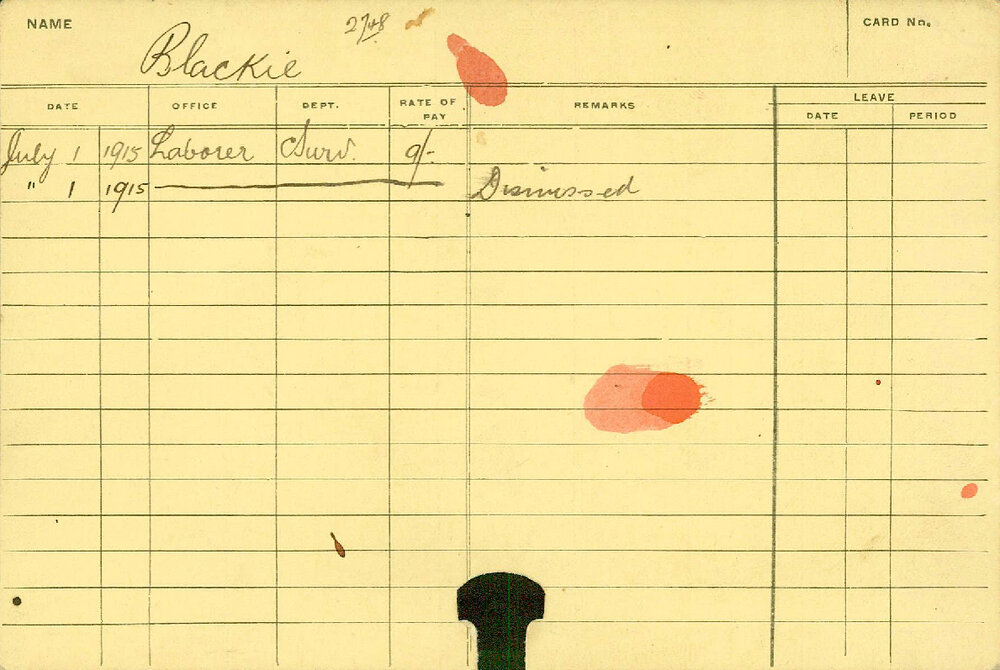 NAME 2748 CARD No.
Blackie
DATE OFFICE DEPT. RATE OF PAY REMARKS LEAVE
DATE PERIOD
July 1 1915 Laborer Surv. 9/-
" 1 1915 Dismissed